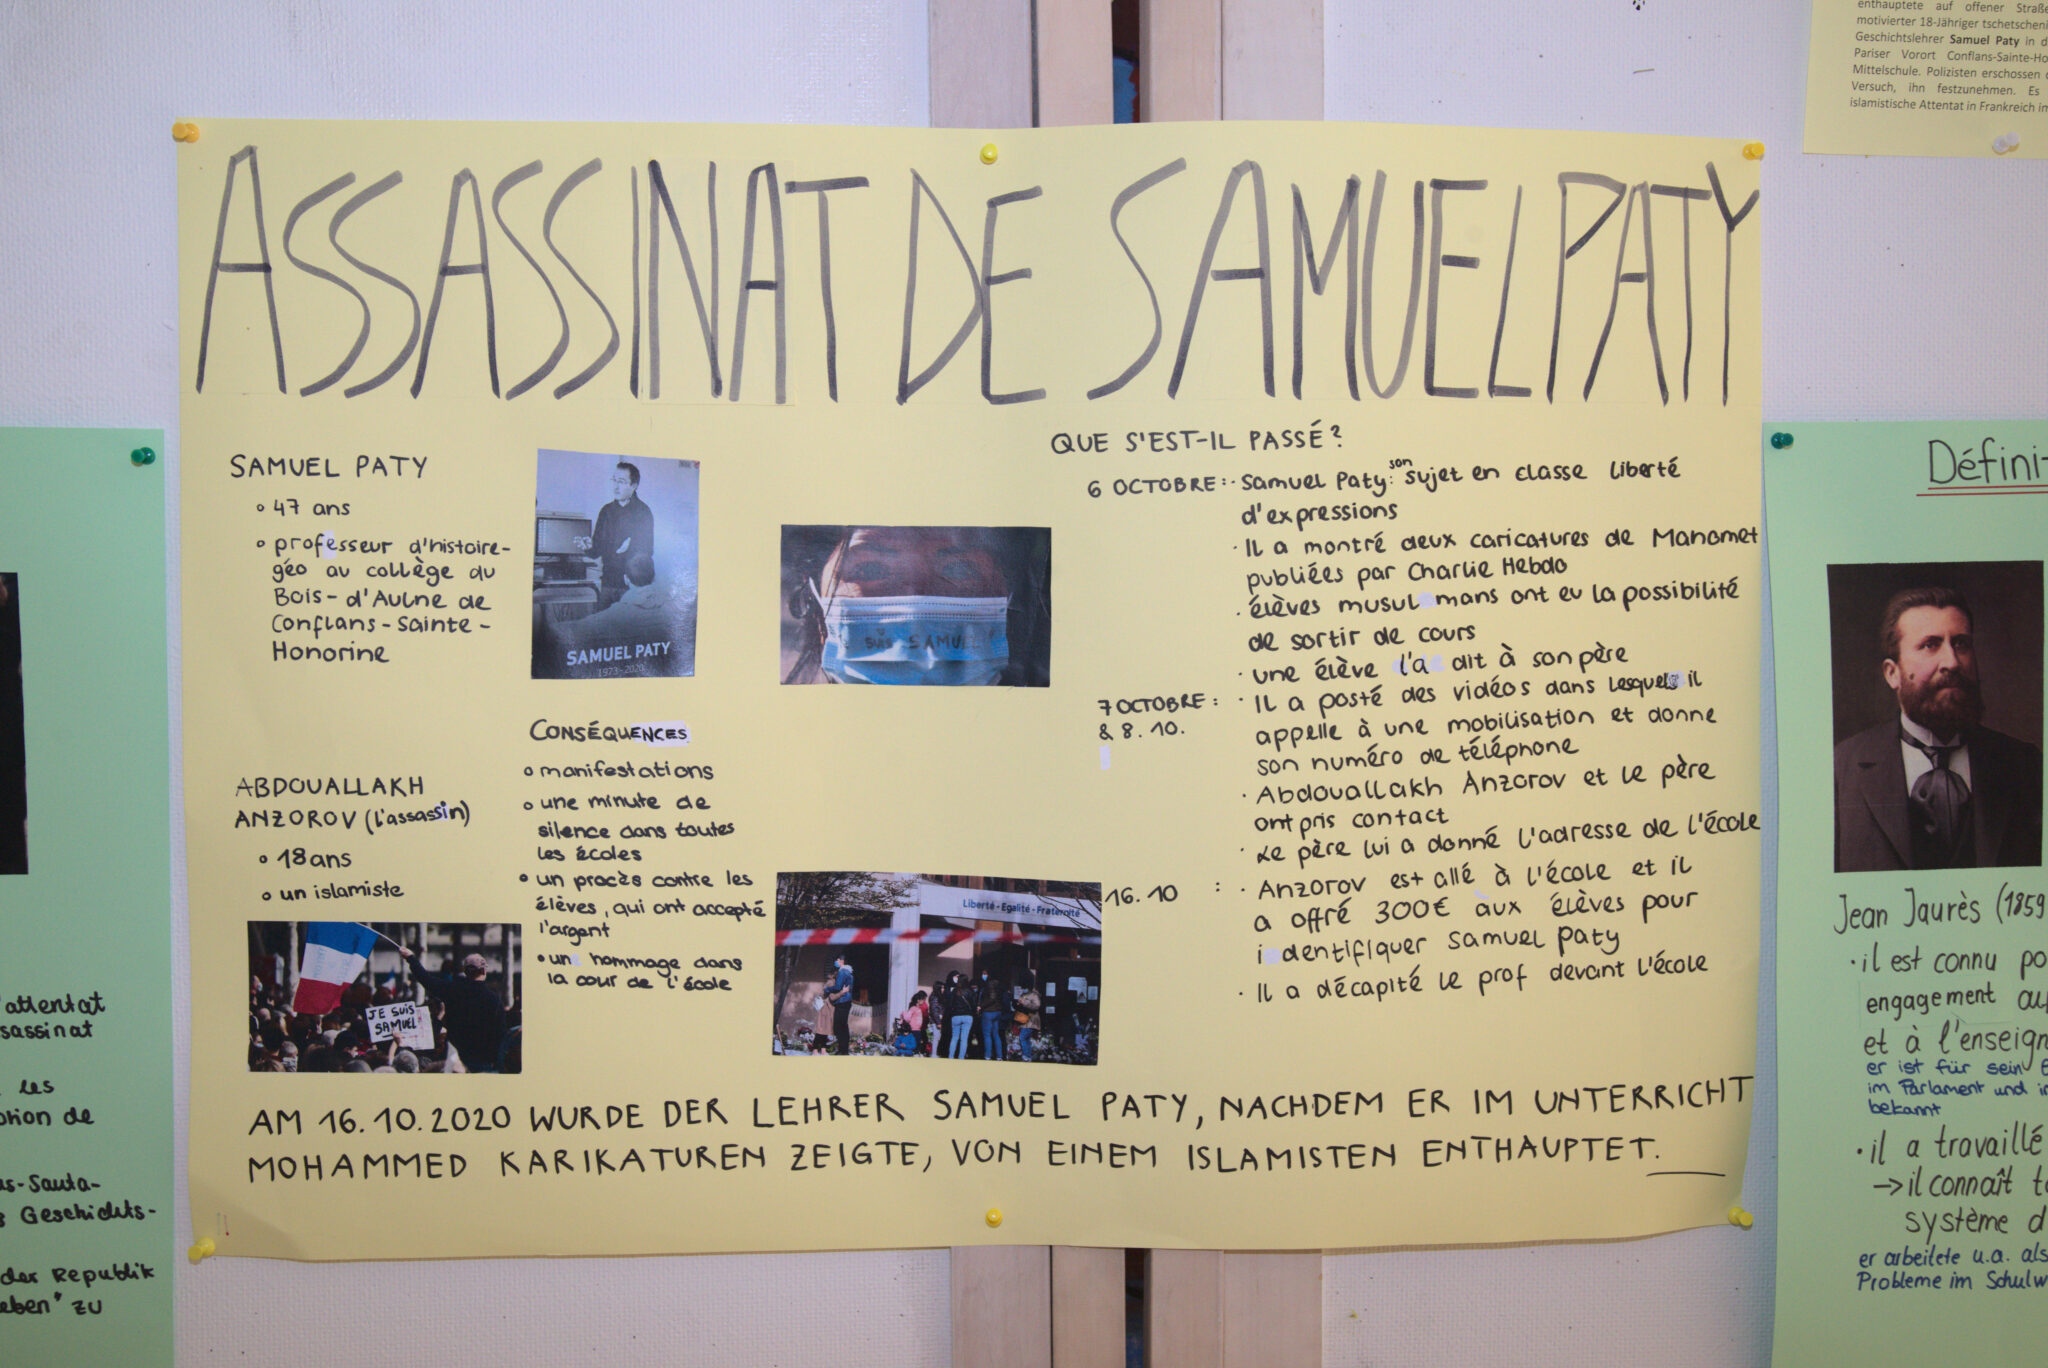 enthauptete auf offener Straße
motivierter 18-Jähriger
Geschichtslehrer Samuel Paty in
Pariser Vorort
Mittelschule. Polizisten erschossen
Versuch, ihn festzunehmen. Es
islamistische Attentat in Frankreich
ASSASSINAT DE SAMUEL PATY
SAMUEL PATY
47 ans
professeur d'histoire-
géo au collège du
Bois-d'Aulne de
Conflans-Sainte-
Honorine
SAMUEL PATY
1973-2020
SUIS SAMU
ABDOUALLAKH
ANZOROV (l'assassin)
18 ans
un islamiste
JE SUIS
SAMUEL
CONSÉQUENCES
manifestations
une minute de
silence dans toutes
les écoles
un procès contre les
élèves, qui ont accepté
l'argent
un hommage dans
la cour de l'école
Liberté - Egalité - Fraternité
QUE S'EST-IL PASSÉ?
6 OCTOBRE: · Samuel Paty: son sujet en classe liberté
d'expressions
· Il a montré deux caricatures de Mahomet
publiées par Charlie Hebdo
· élèves musulmans ont eu la possibilité
de sortir de cours
· une élève l'a dit à son père
7 OCTOBRE : · Il a posté des vidéos dans lesquels il
& 8. 10. appelle à une mobilisation et donne
son numéro de téléphone
· Abdouallakh Anzorov et le père
ont pris contact
· Le père lui a donné l'adresse de l'école
16. 10 : · Anzorov est allé à l'école et il
a offré 300€ aux élèves pour
identifiquer Samuel Paty
· Il a décapité le prof devant l'école
AM 16.10.2020 WURDE DER LEHRER SAMUEL PATY, NACHDEM ER IM UNTERRICHT
MOHAMMED KARIKATUREN ZEIGTE, VON EINEM ISLAMISTEN ENTHAUPTET.
attentat
les
de
Geschichts-
der Republik
zu
Jean Jaurès (1859
· il est connu
engagement
et à l'enseign
er ist für sein
im Parlament und
bekannt
· il a travaillé
→ il connaît
système
er arbeitete u.a. als
Probleme im